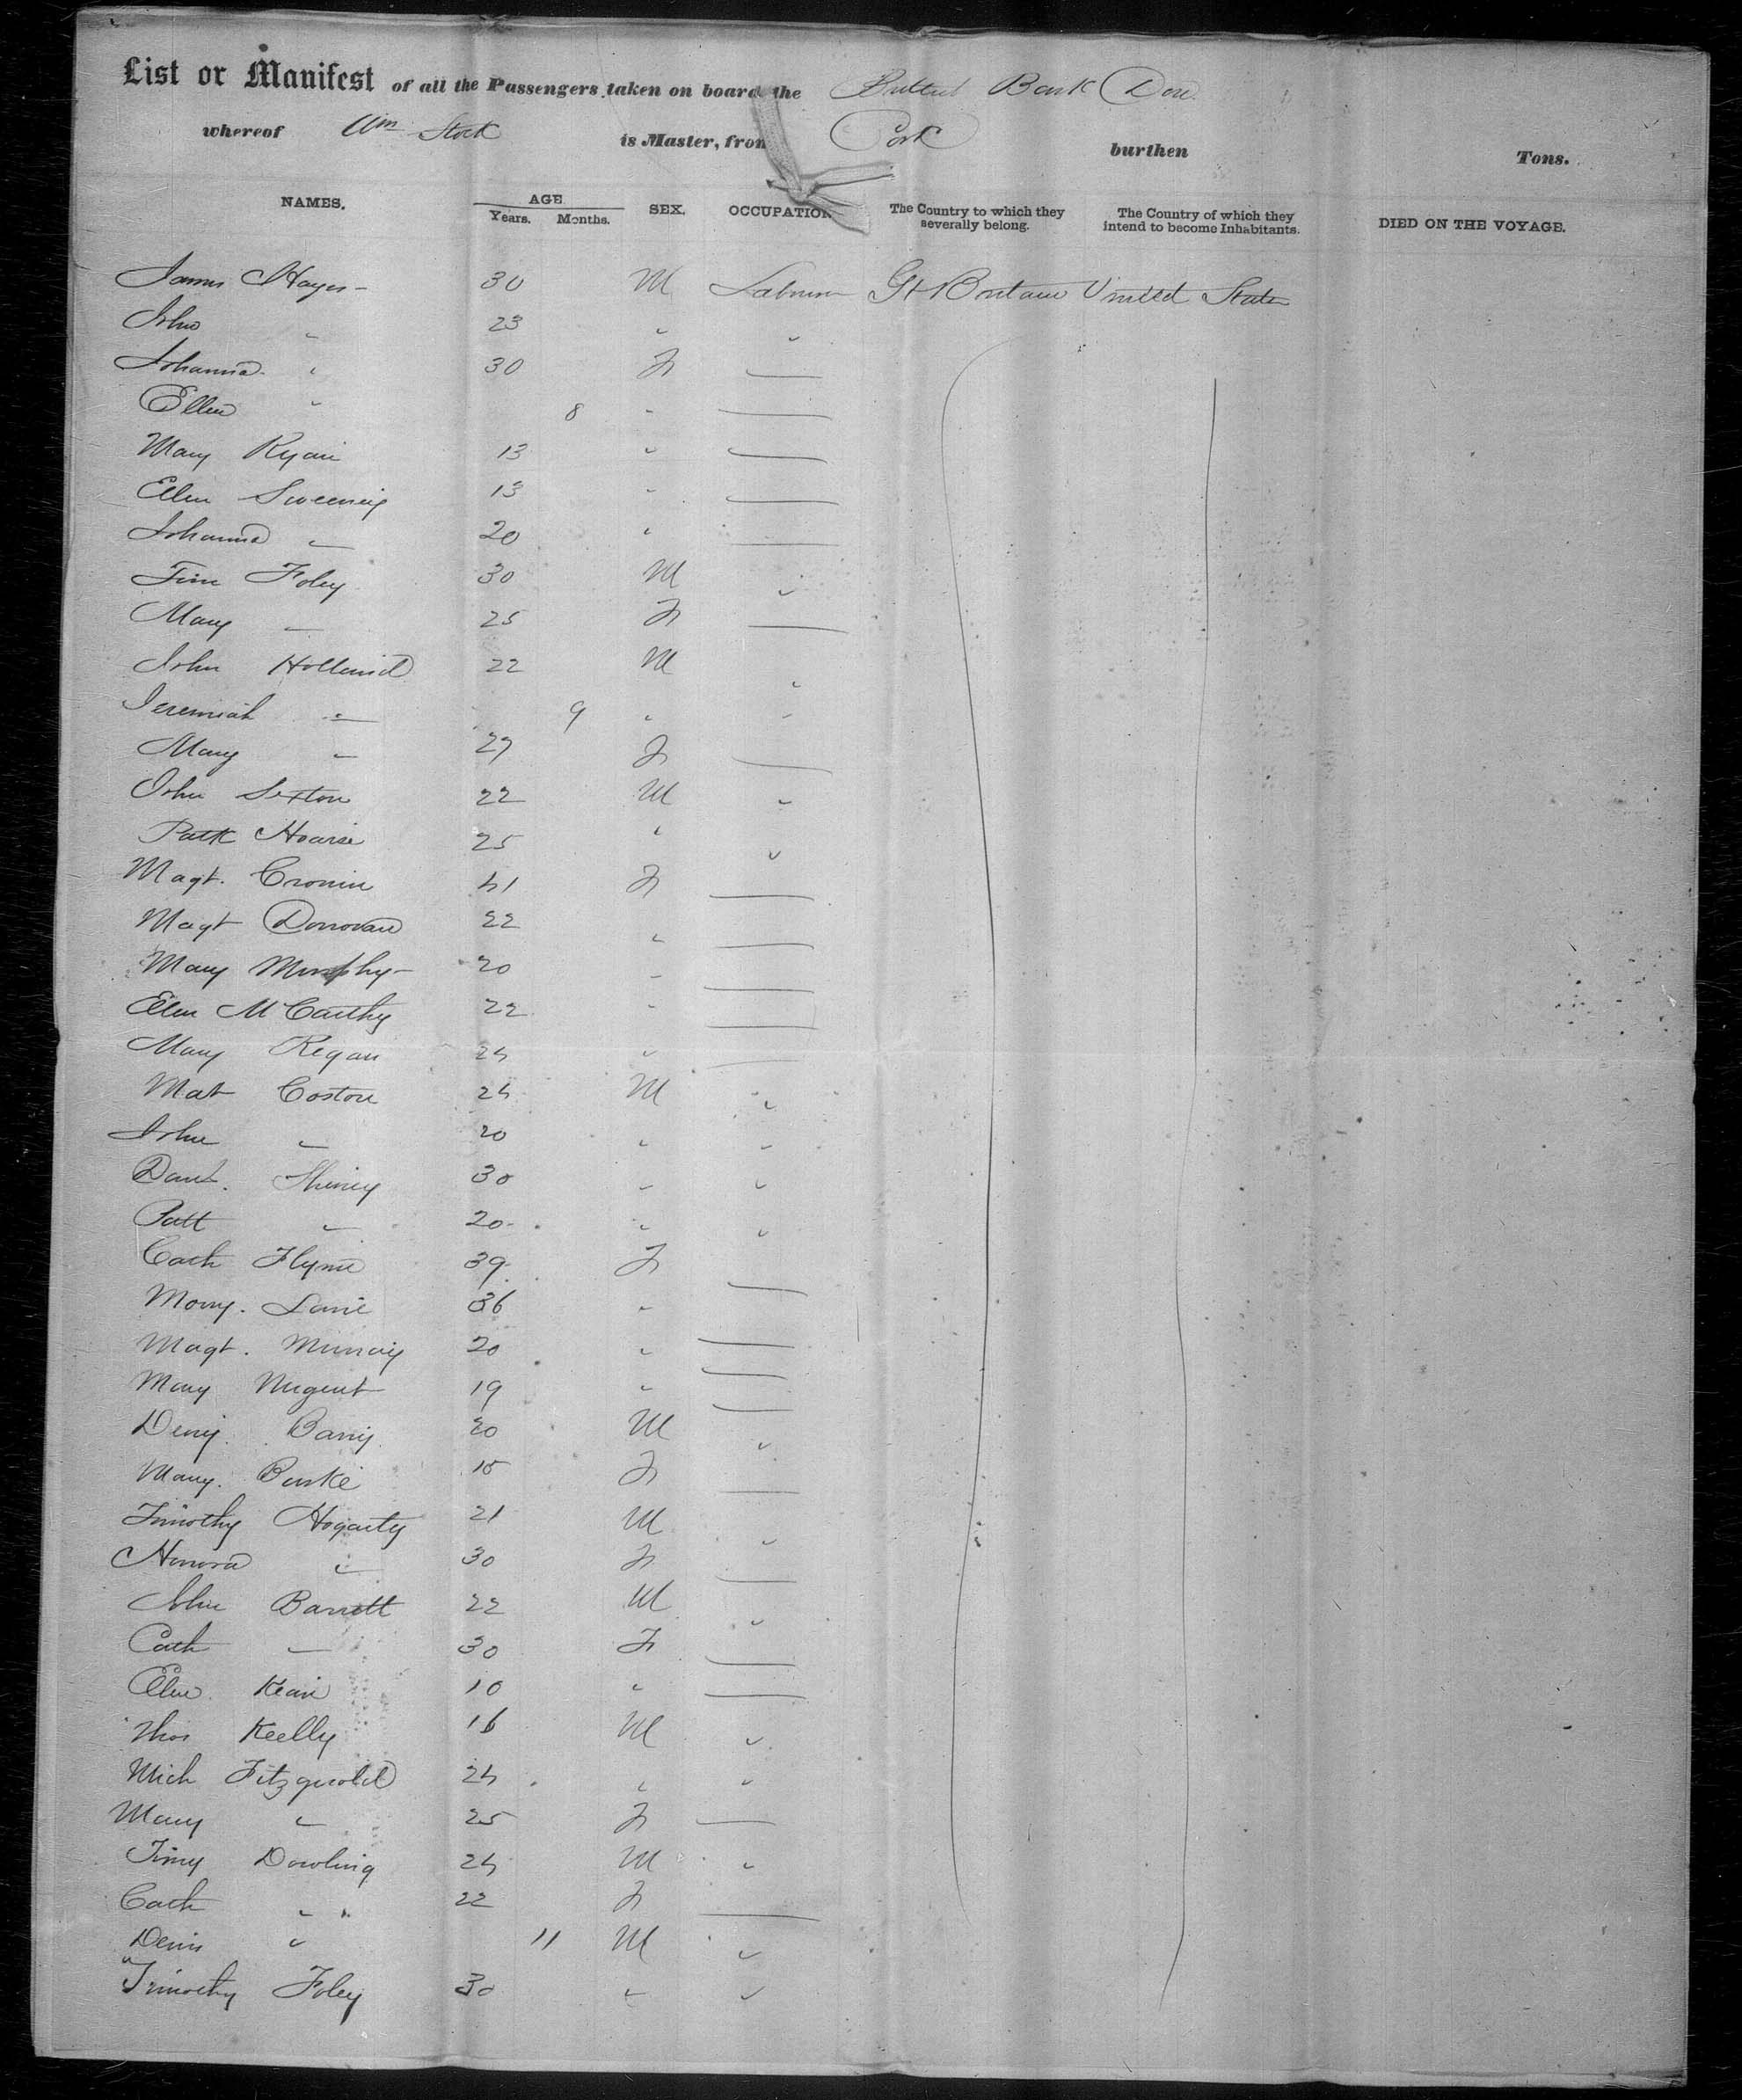 List or Manifest of all the Passengers taken on board the British Bark Dove
whereof Wm Stott is Master, from Cork burthen Tons.
NAMES. AGE Years. Months. SEX. OCCUPATION The Country to which they severally belong. The Country of which they intend to become Inhabitants. DIED ON THE VOYAGE.
James Hayes - 30 M Labourer Gt Britain United States
John " 23 " "
Johanna " 30 F —
Ellen " 8 " —
Mary Ryan 13 " —
Ellen Sweeney 13 " —
Johanna " 20 " —
Tim Foley 30 M "
Mary — 25 F —
John Holland 22 M "
Jeremiah " 9 " "
Mary " 27 F —
John Sexton 22 M "
Patk 25 " "
Magt. Cronin 41 F —
Magt Donovan 22 " —
Mary Murphy - 20 " —
Ellen McCarthy 22 " —
Mary Regan 24 " —
Mat Coston 24 M "
John " 20 " "
Danl. 30 " "
Patt " 20 " "
Cath Flynn 39 F —
Mary. Lane 36 " —
Magt. Murray 20 " —
Mary Nugent 19 " —
Deny. Barry 20 M "
Mary. Burke 15 F —
Timothy Hogarty 21 M "
Honora " 30 F —
John Barrett 22 M "
Cath — 30 F —
Ellen Kean 10 " —
Thos Keelly 16 M "
Mich Fitzgerald 24 " "
Mary " 25 F —
Timy Dowling 24 M "
Cath " 22 F —
Denis " 11 M "
Timothy Foley 30 " "